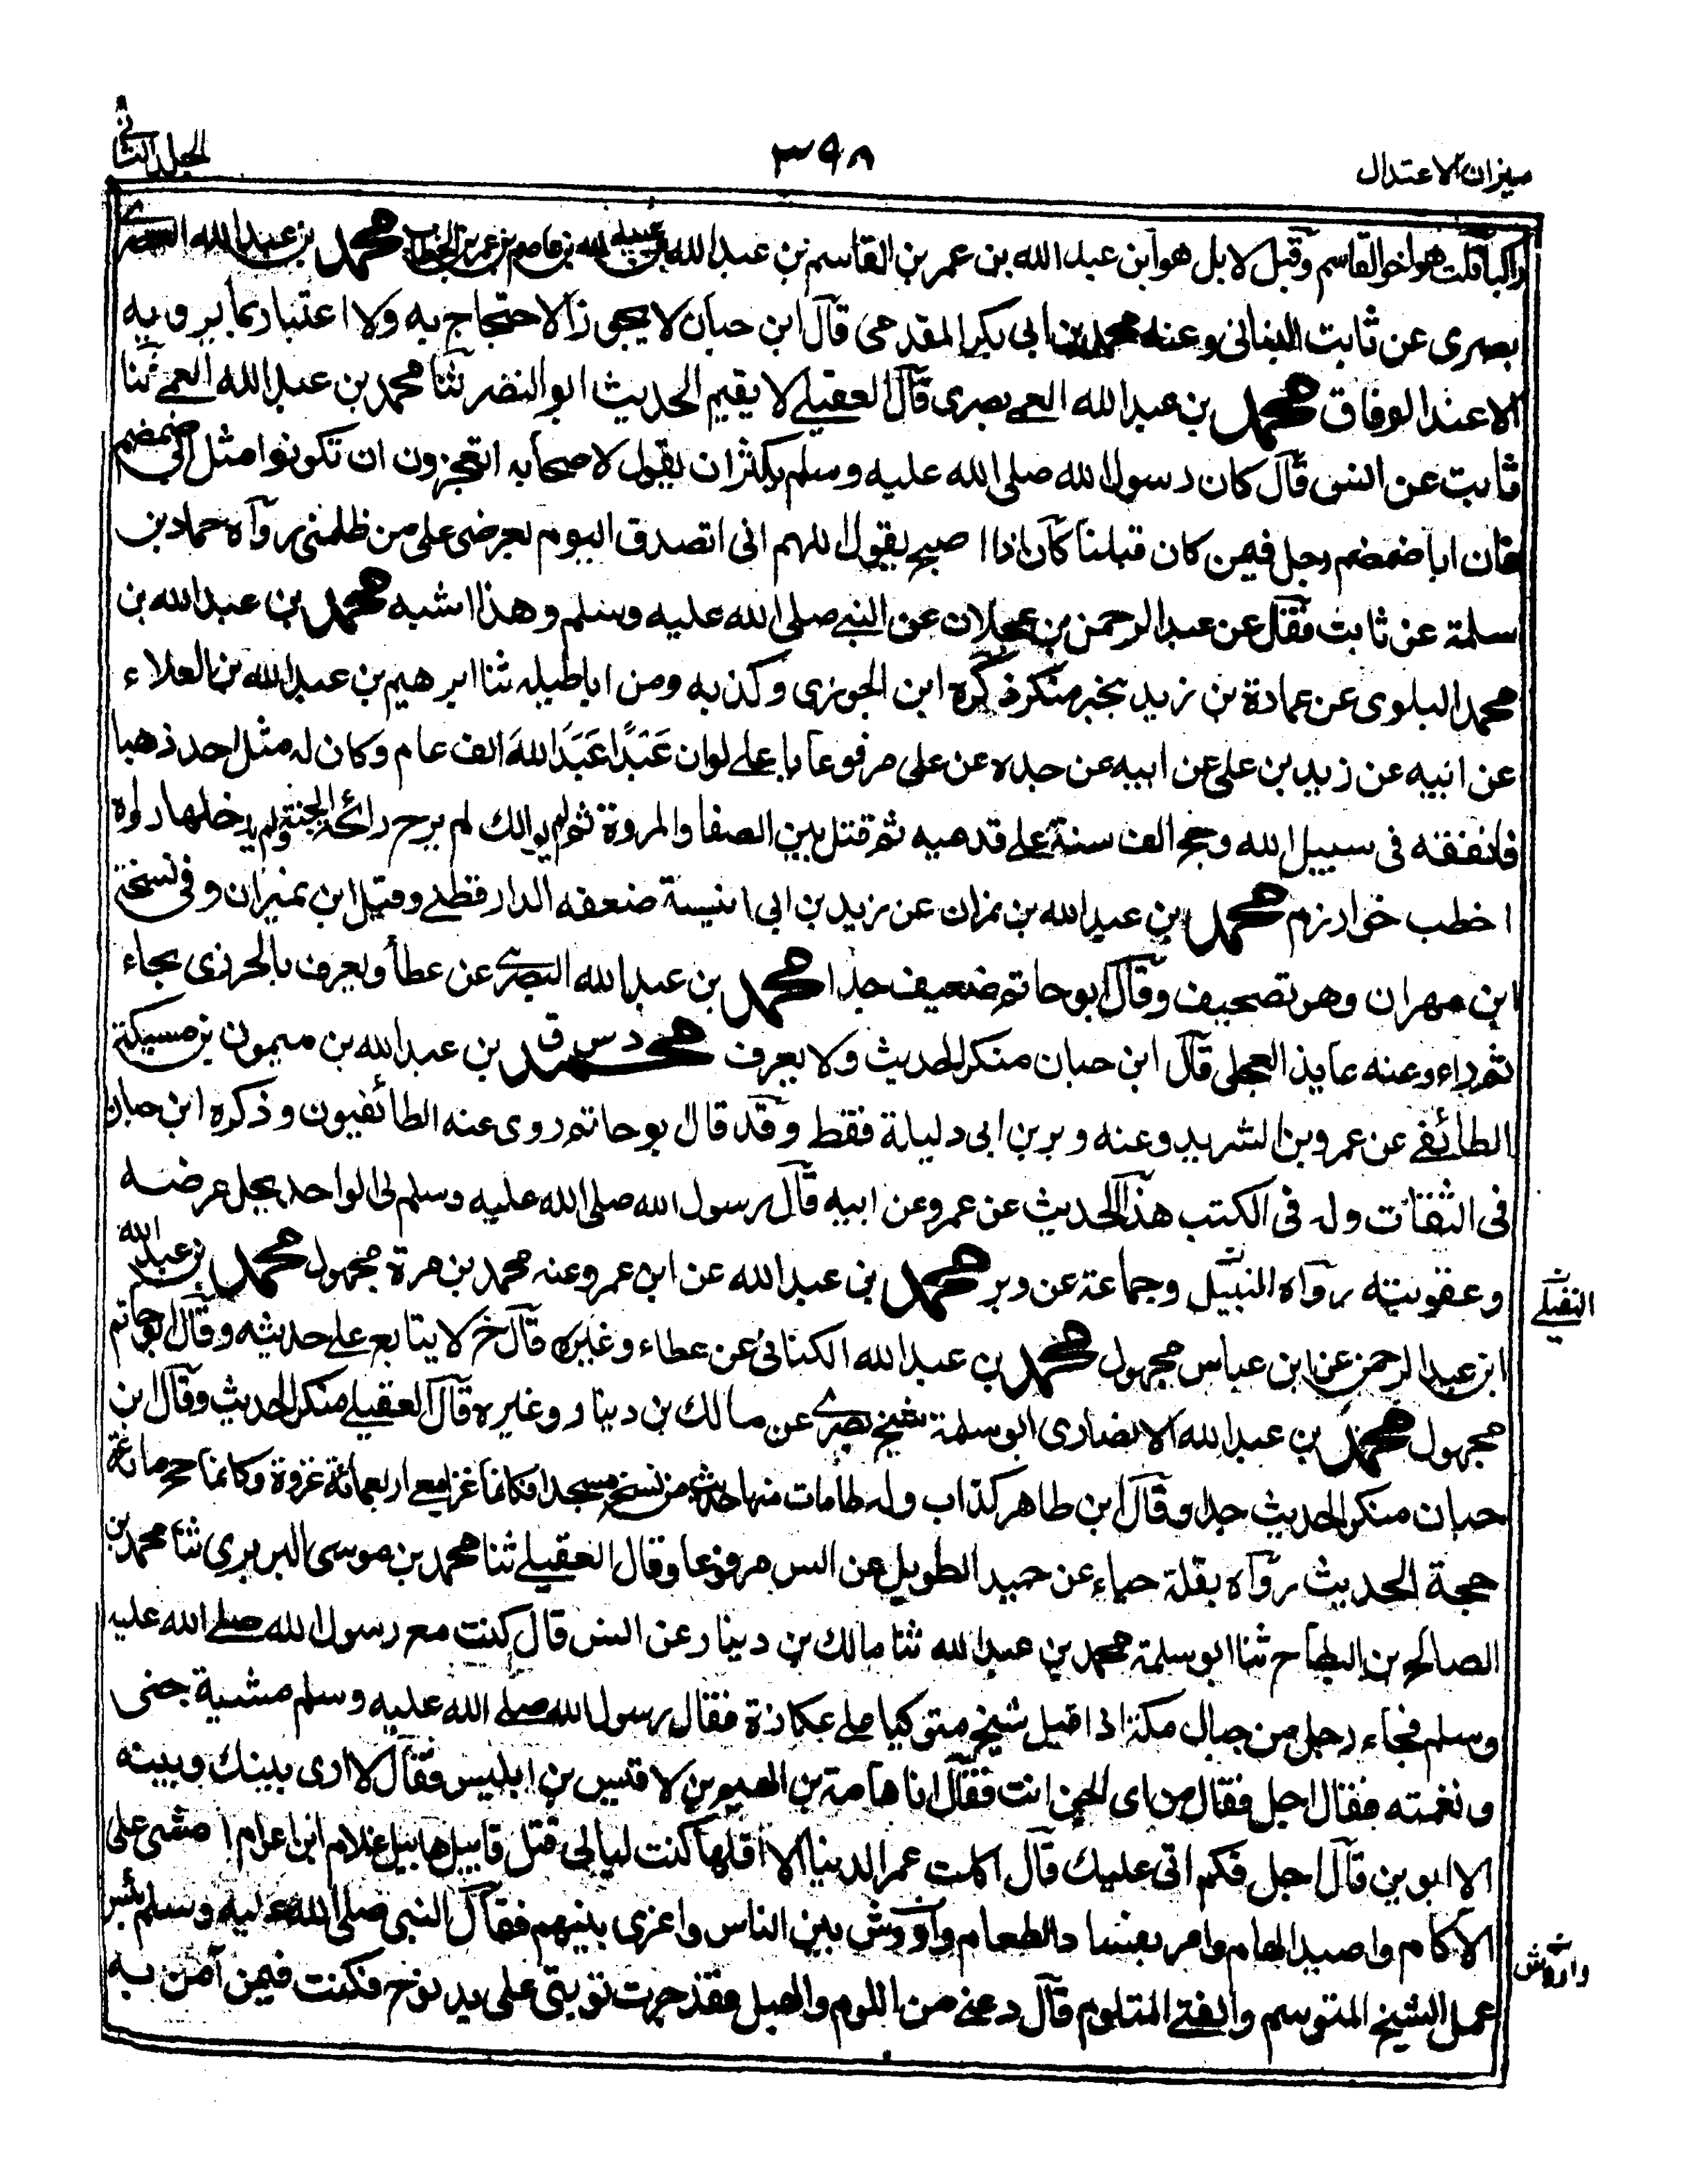 ميزان الاعتدال
٣٩٨
الجلد الثاني
راكبا قلت هو اخو القاسم وقيل لا بل هو ابن عبد الله بن عمر بن القاسم بن عبد الله بن عبيد الله بن عاصم بن عمر بن الخطاب محمد بن عبد الله
بصرى عن ثابت البنانى وعنه محمد بن ابى بكر المقدمى قال ابن حبان لا يجوز الاحتجاج به ولا اعتبار بما يرويه
الا عند الوفاق محمد بن عبد الله العمى بصرى قال العقيلے لا يقيم الحديث ابو النضر ثنا محمد بن عبد الله العمے ثنا
ثابت عن انس قال كان رسول الله صلى الله عليه وسلم يكثر ان يقول لاصحابه اتعجزون ان تكونوا مثل ابى ضمضم
فان ابا ضمضم رجل فيمن كان قبلنا كان اذا اصبح يقول اللهم انى اتصدق اليوم بعرضى على من ظلمنى رواه حماد بن
سلمة عن ثابت فقال عن عبد الرحمن بن عجلان عن النبے صلى الله عليه وسلم وهذا اشبه محمد بن عبد الله بن
محمد البلوى عن عمارة بن زيد بخبر منكر ذكره ابن الجوزى وكذبه ومن اباطيله ثنا ابرهيم بن عبد الله بن العلاء
عن ابيه عن زيد بن على عن ابيه عن جده عن على مرفوعا يا علے لو ان عَبْدًا عَبَدَ اللهَ الف عام وكان له مثل احد ذهبا
فانفقه فى سبيل الله وحج الف سنة علے قدميه ثم قتل بين الصفا والمروة ثم لم يوالك لم يرح رائحة الجنة ولم يدخلها رواه
اخطب خوارزم محمد بن عبد الله بن نمران عن زيد بن ابى انيسة ضعفه الدارقطنے وقيل ابن نميران وفى نسخة
ابن مهران وهو تصحيف وقال ابو حاتم ضعيف جدا محمد بن عبد الله البصرے عن عطا ويعرف بالحرزى بحاء
ثم راء وعنه عايذ العجلى قال ابن حبان منكر الحديث ولا يعرف محمد د س ق بن عبد الله بن ميمون بن مسيكة
الطائفے عن عمرو بن الشريد وعنه وبر بن ابى دليلة فقط وقد قال بو حاتم روى عنه الطائفيون وذكره ابن حبان
فى الثقات وله فى الكتب هذا الحديث عن عمرو عن ابيه قال رسول الله صلى الله عليه وسلم لى الواحد يحل عرضه
وعقوبته رواه النبيل وجماعة عن وبر محمد بن عبد الله عن ابن عمر وعنه محمد بن مرة مجهول محمد بن عبد الله
النفيلے
ابن عبد الرحمن عن ابن عباس مجهول محمد بن عبد الله الكنانى عن عطاء وغيره قال خ لا يتابع على حديثه وقال ابو حاتم
مجهول محمد بن عبد الله الانصارى ابو سلمة شيخ بصرے عن مالك بن دينار وغيره قال العقيلے منكر الحديث وقال ابن
حبان منكر الحديث جدا وقال ابن طاهر كذاب وله طامات منها حديث من مسجدا فكانما غزا معى اربعمائة غزوة وكانما حج مائة
حجة الحديث رواه بقلة حياء عن حميد الطويل عن انس مرفوعا وقال العقيلے ثنا محمد بن موسى البربرى ثنا محمد بن
الصالح بن البطاح ثنا ابو سلمة محمد بن عبد الله ثنا مالك بن دينار عن انس قال كنت مع رسول الله صلے الله عليه
وسلم فجاء رجل من جبال مكة اذ اقبل شيخ متوكيا علے عكازة فقال رسول الله صلے الله عليه وسلم مشية جنى
ونغمته فقال اجل فقال من اى الجن انت فقال انا هامة بن الهيم بن لاقيس بن ابليس فقال لا ارى بينك وبينه
الا ابوين قال اجل فكم اتى عليك قال اكلت عمر الدنيا الا اقلها كنت ليالى قتل قابيل هابيل غلام ابن اعوام امشى على
الآكام واصيد الهام وامر بفساد الطعام واؤرش بين الناس واغرى بينهم فقال النبى صلى الله عليه وسلم بئس
وارّش
عمل الشيخ المتوسم والفتے المتلوم قال دعنے من اللوم والهبل فقد جرت توبتى على يد نوح فكنت فيمن آمن به